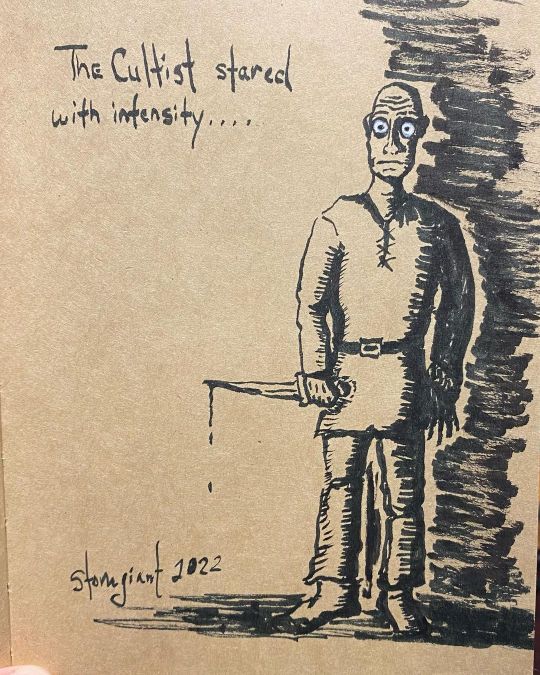 The Cultist stared
with intensity....
stormgiant 2022